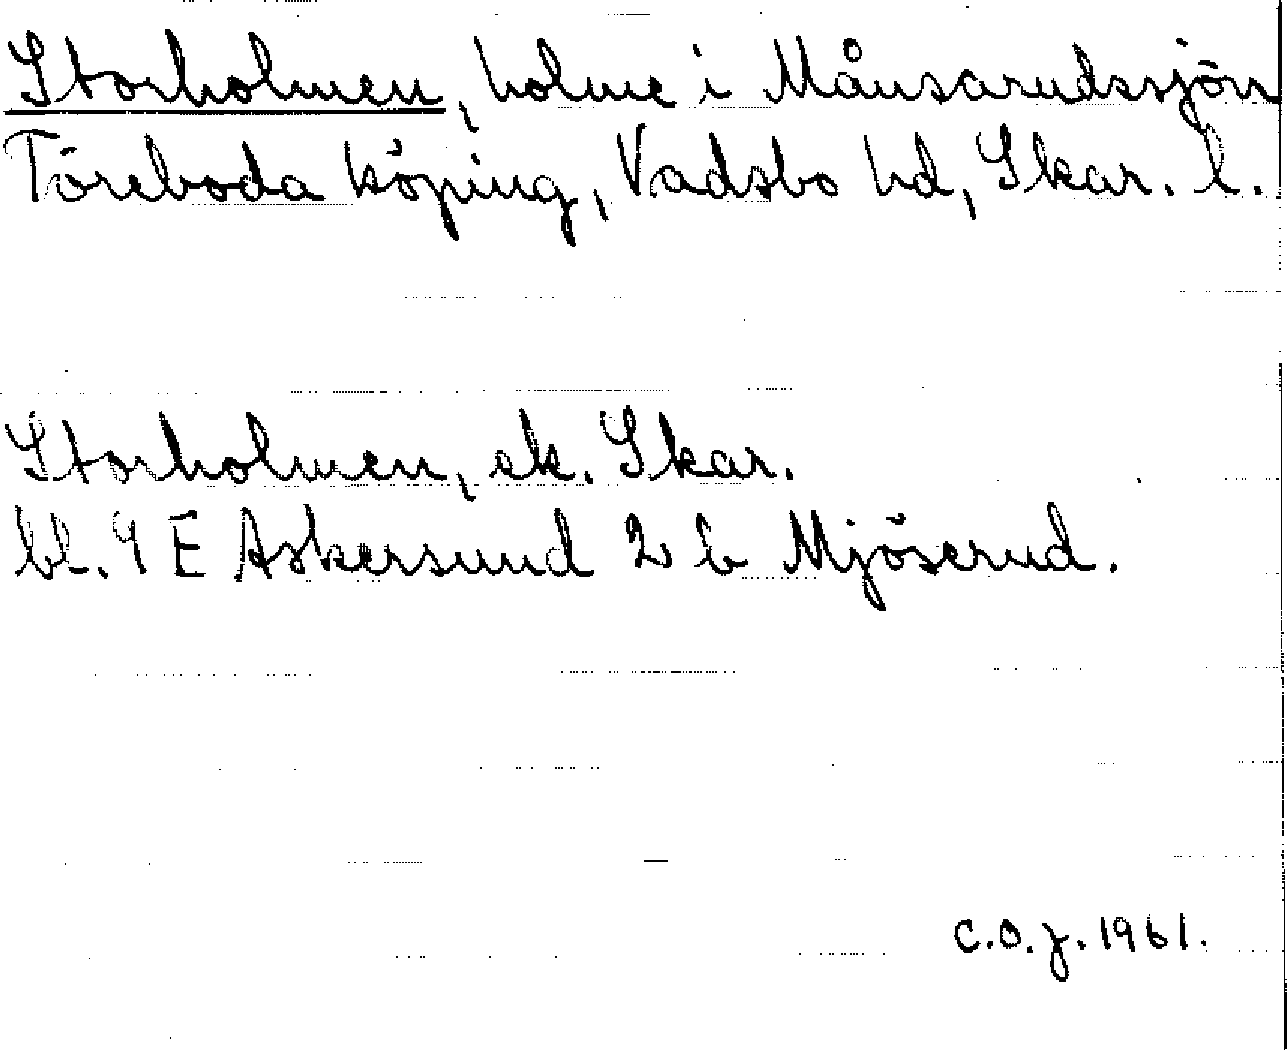 Storholmen, holme i Månsarudssjön
Töreboda köping, Vadsbo hd, Skar. l.
Storholmen, ek. Skar.
bl. 9 E Askersund 2 b Mjöserud.
C.O.J. 1961.